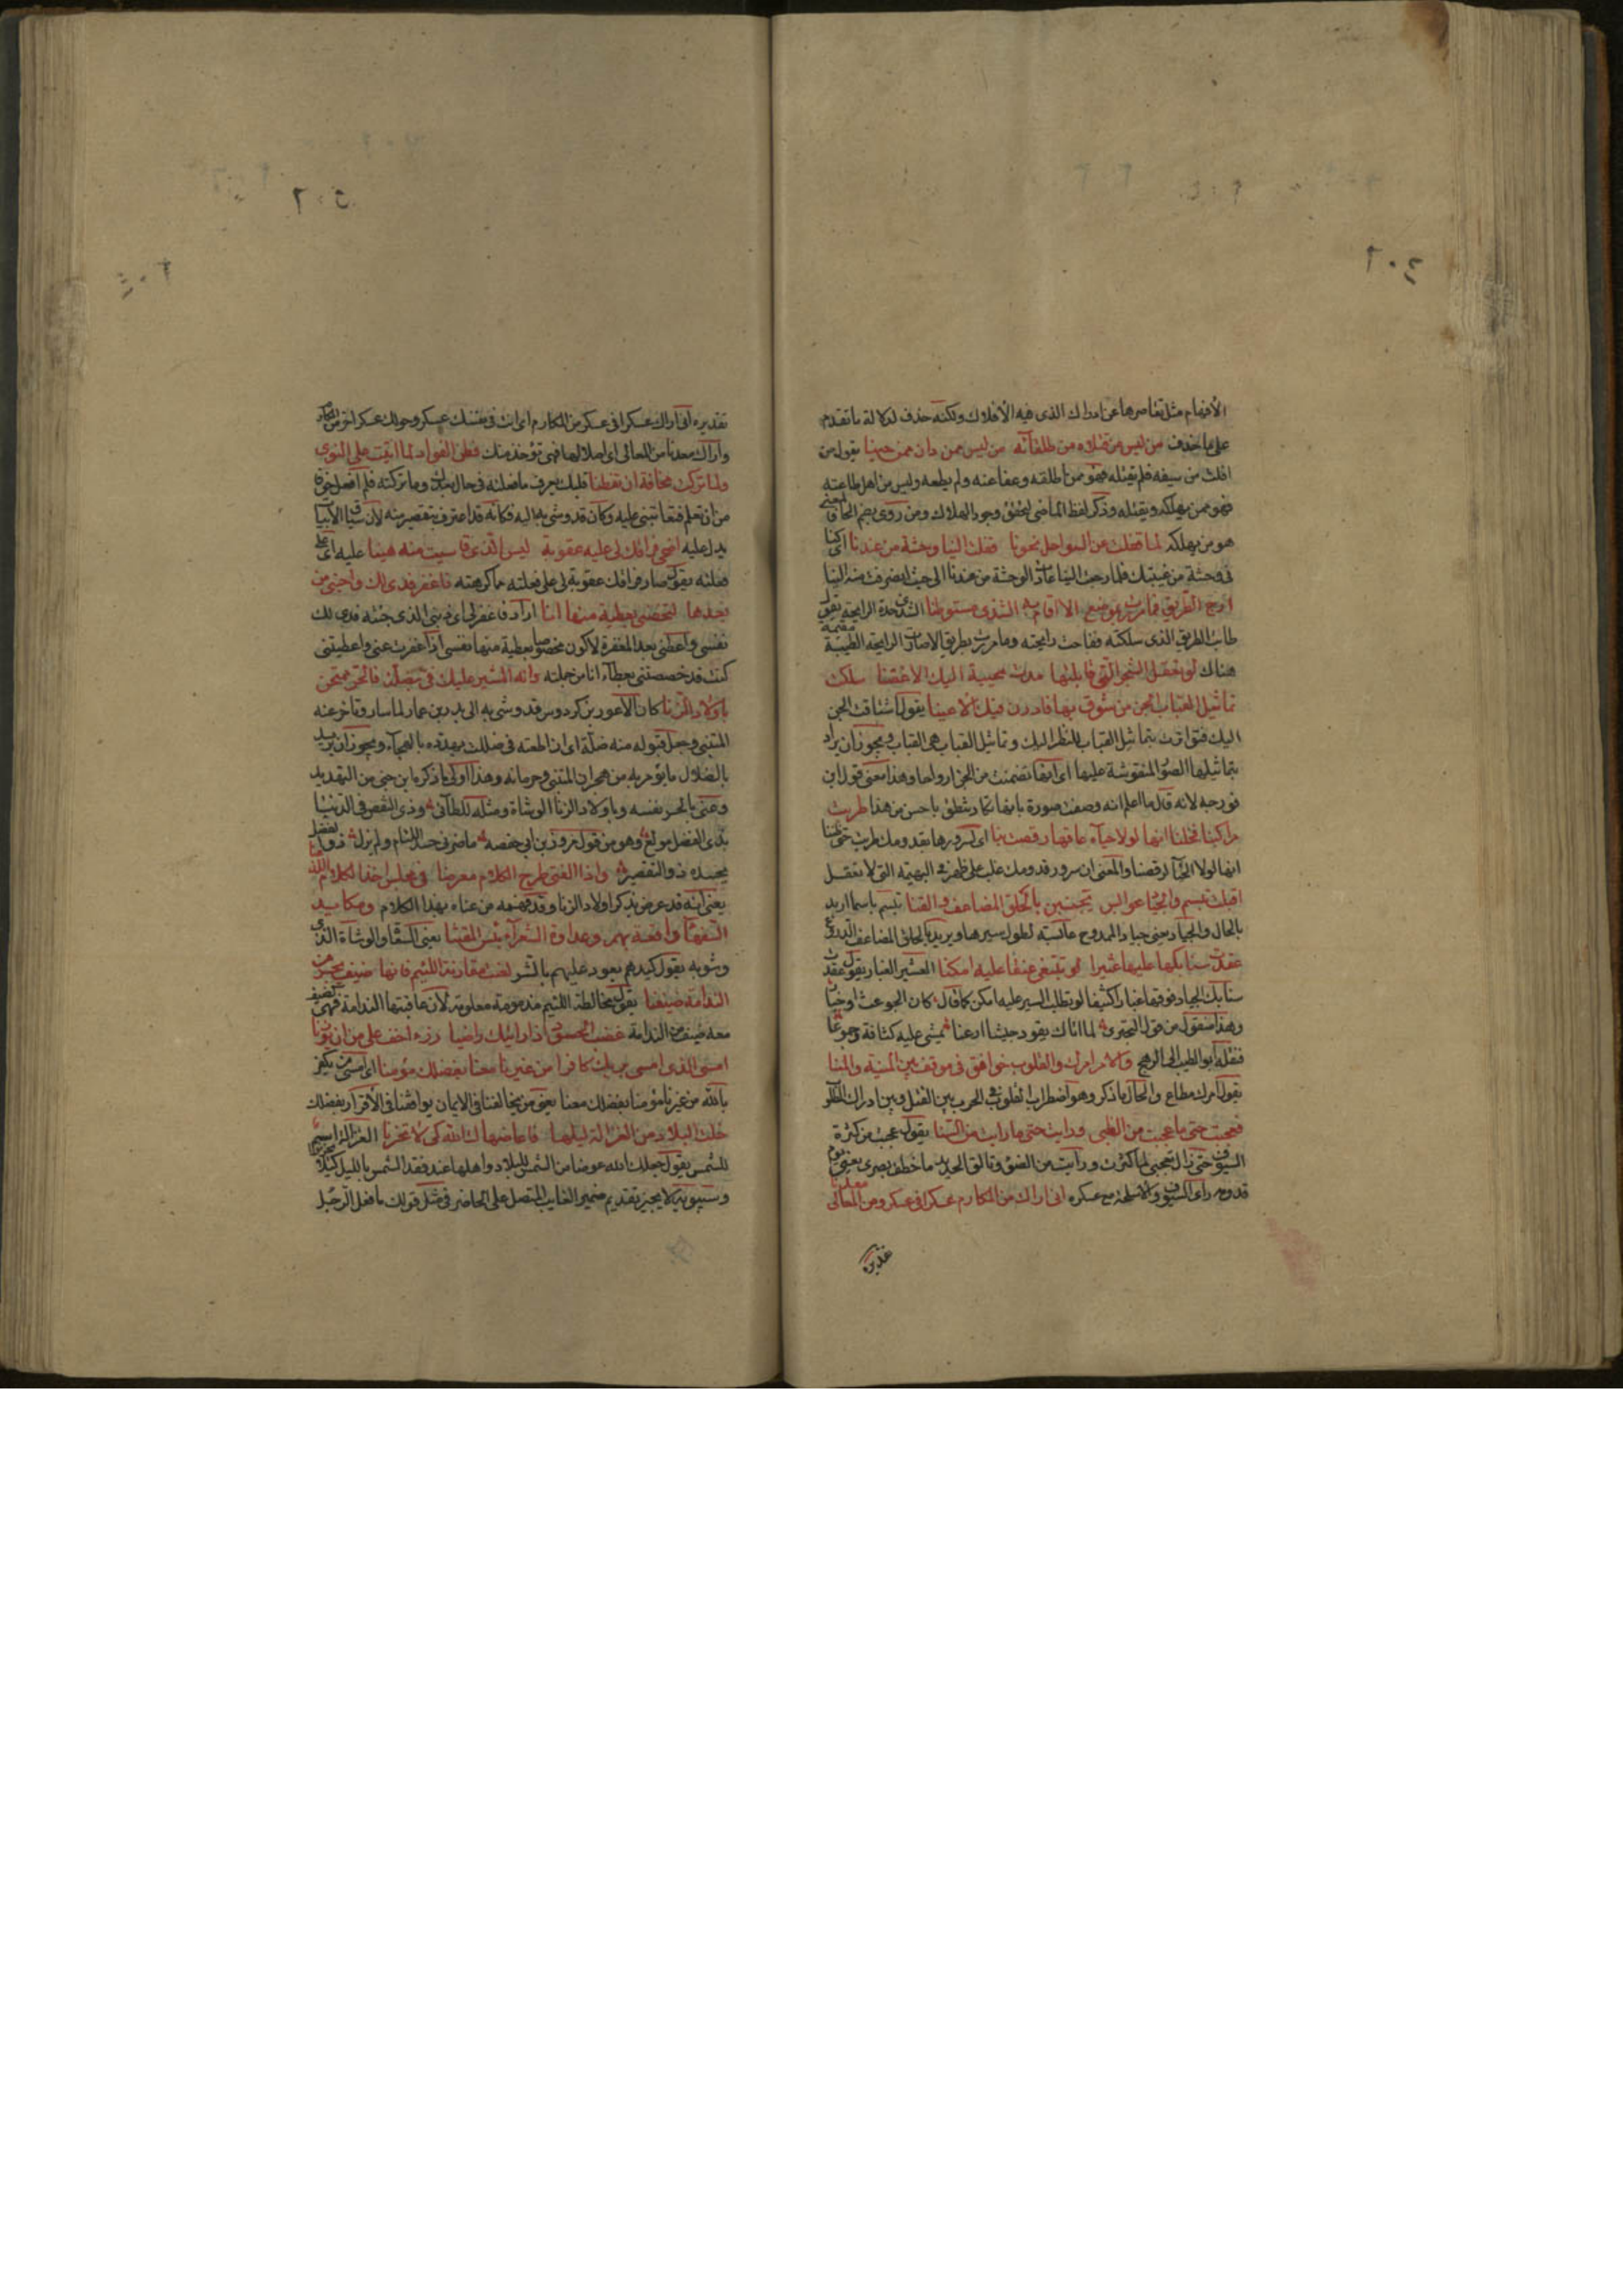 ٢٠٤
الأفهام مثل تقاصرها عن ادراك الذى فيه الأفلاك ولكنه حذف لدلالة ما تقدم
على ما حذف من ليس من قتلاه من طلقائه من ليس ممن دان ممن حينا يقول من
افلت من سيفه فلم يقتله فهو ممن اطلقه وعفا عنه ولم يطعه وليس من اهل طاعته
فهو ممن يهلكه ويقتله وذكر لفظ الماضى لتحقق وجود الهلاك ومن روى بضم الحا فالمعنى
هو من يهلكه لما قفلت عن السواحل نحونا قفلت الينا وحشة من عندنا اى كنا
فى وحشة من غيبتك فلما رجعت الينا عادت الوحشة من عندنا الى حيث انصرفت منه الينا
ارج الطريق فما مررت بموضع الا اقام به الشذى مستوطنا الشذى حدة الرايحة يقول
طاب الطريق الذى سلكته ففاحت رايحته وما مررت بطريق الا صارت الرايحة الطيبة مقيمة
هناك لو تعقل الشجر التى قابلتها مدت محيية اليك الأغصنا سلكت
تماثيل القباب الجن من شوق بها فادرن فيك الاعينا يقول اشتاقت الجن
اليك فتوارت بتماثيل القباب للنظر اليك وتماثيل القباب هى القباب ويجوز ان يراد
بتماثيلها الصور المنقوشة عليها اى انها تضمنت من الجن ارواحا وهذا معنى قول ابن
فورجه لانه قال ما اعلم انه وصفت صورة بانها تكاد تنطق باحسن من هذا طربت
مراكبنا فخلنا انها لولا حياء عاقها رقصت بنا اى لسرورها بقدومك طربت حتى ظننا
انها لولا الحيا لرقصنا والمعنى ان سرور قدومك غلب على ظهر فى البهيمة التى لا تعقل
اقبلت تبسم والجياد عوابس يخببن بالحلق المضاعف والقنا تبسم باسما اريد
بالحال والجياد يعنى جياد الممدوح عابسة لطول سيرها ويريد بالحلق المضاعف الدروع
عقدت سنابكها عليها عثيرا لو تبتغى عنقا عليه امكنا العثير الغبار يقول عقدت
سنابك الجياد فوقها غبارا كثيفا لو تطلب السير عليه امكن كما قال
وهذا منقول من قول البحترى لما اتاك يقود جيشا ارعنا يمشى عليه كثافة وجموعا
فنقله ابو الطيب الى الرهج والامر امرك والقلوب خوافق فى موقف بين المنية والمنا
يقول امرك مطاع والحال ما ذكر وهو اضطراب القلوب فى الحرب بين القتل وبين ادراك
فعجبت حتى ما عجبت من الظبى ورايت حتى ما رايت من السنا يقول عجبت من كثرة
السيوف حتى زال تعجبى لما كثرت ورأيت من الضوء وتالق الحديد ما خطف بصرى يعنى يوم
قدومه راى السيوف والاسلحة مع عسكره انى اراك من المكارم عسكرا فى عسكر ومن المعالى معدنا
تقديره
٢٠٥
تقديره انى اراك عسكرا فى عسكر من المكارم اى انت فى نفسك عسكر وحولك عسكر اخر من المكارم
واراك معدنا من المعالى اى اصلا لها فهى تؤخذ منك فطن الفؤاد لما اتيت على النوى
ولما تركت مخافة ان تفطنا قلبك يعرف ما فعلته فى حال بعدك وما تركته فلم افعل خوفا
من ان تعلم فتعاتبنى عليه وكان قد وشى به اليه فكانه قد اعترف بتقصير منه لان سياق الأبيات
يدل عليه اضحى فراقك لى عليه عقوبة ليس الذى قاسيت منه هينا عليه اى على
فعلته يقول صار فراقك عقوبة لى على فعلته مما كرهته فاغفر فدى لك واحبنى من
بعدها لتخصنى بعطية منها انا اراد فاغفر لى اى ذنبى الذى جنيته فدى لك
نفسى واعطنى بعد المغفرة لاكون مخصوصا بعطية منها نفسى اذا غفرت عنى واعطيتنى
كنت قد خصصتنى بعطاء انا من جملته وانه المشير عليك فى بضلة فالحر ممتحن
باولاد الزنا كان الأعور بن كردوس قد وشى به الى بدر بن عمار لما سار وتاخر عنه
المتنبى وجعل قبوله منه ضلة اى ان اطعته فى ضللت يهدده بالهجاء ويجوز ان يريد
بالضلال ما يؤمر به من هجران المتنبى وحرمانه وهذا اولى مما ذكره ابن جنى من التهديد
وعنى بالحر نفسه وباولاد الزنا الوشاة ومثله للطائى وذى النقص فى الدنيا
بذى الفضل مولع وهو من قول مروان بن ابى حفصه ما ضرنى حسد اللئام ولم يزل ذو الفضل
يحسده ذو التقصير واذا الفتى طرح الكلام معرضا فى مجلس اخذ الكلام اللذعنا
يعنى انه قد عرض بذكر اولاد الزنا وقد فهمه من عناه بهذا الكلام ومكايد
السفهاء واقعة بهم وعداوة الشعراء بئس المقتنا يعنى السفهاء والوشاة الذى
وشوا به يقول كيدهم يعود عليهم بالشر لعنت مقارنة اللئيم فانها ضيف يجر من
الندامة ضيفنا يقول مخالطة اللئيم مذمومة ملعونة لأن عاقبتها الندامة فهى كضيف
معه ضيف من الندامة غضب الحسود اذا رايتك راضيا رزء اخف على من ان يوزنا
امسى الذى امسى بربك كافرا من غيرنا معنا بفضلك مؤمنا اى امسى من يكفر
بالله من غيرنا مؤمنا بفضلك معنا يعنى من يخالفنا فى الايمان يوافقنا فى الأقرار بفضلك
خلت البلاد من الغزالة ليلها فاعاضهاك الله كى لا تحزنا الغزالة اسم
للشمس يقول جعلك الله عوضا من الشمس للبلاد واهلها عند فقد الشمس بالليل كيلا
وسيبويه لا يجيز تقديم ضمير الغايب المتصل على الحاضر فى مثل قولك ما فعل الرجل